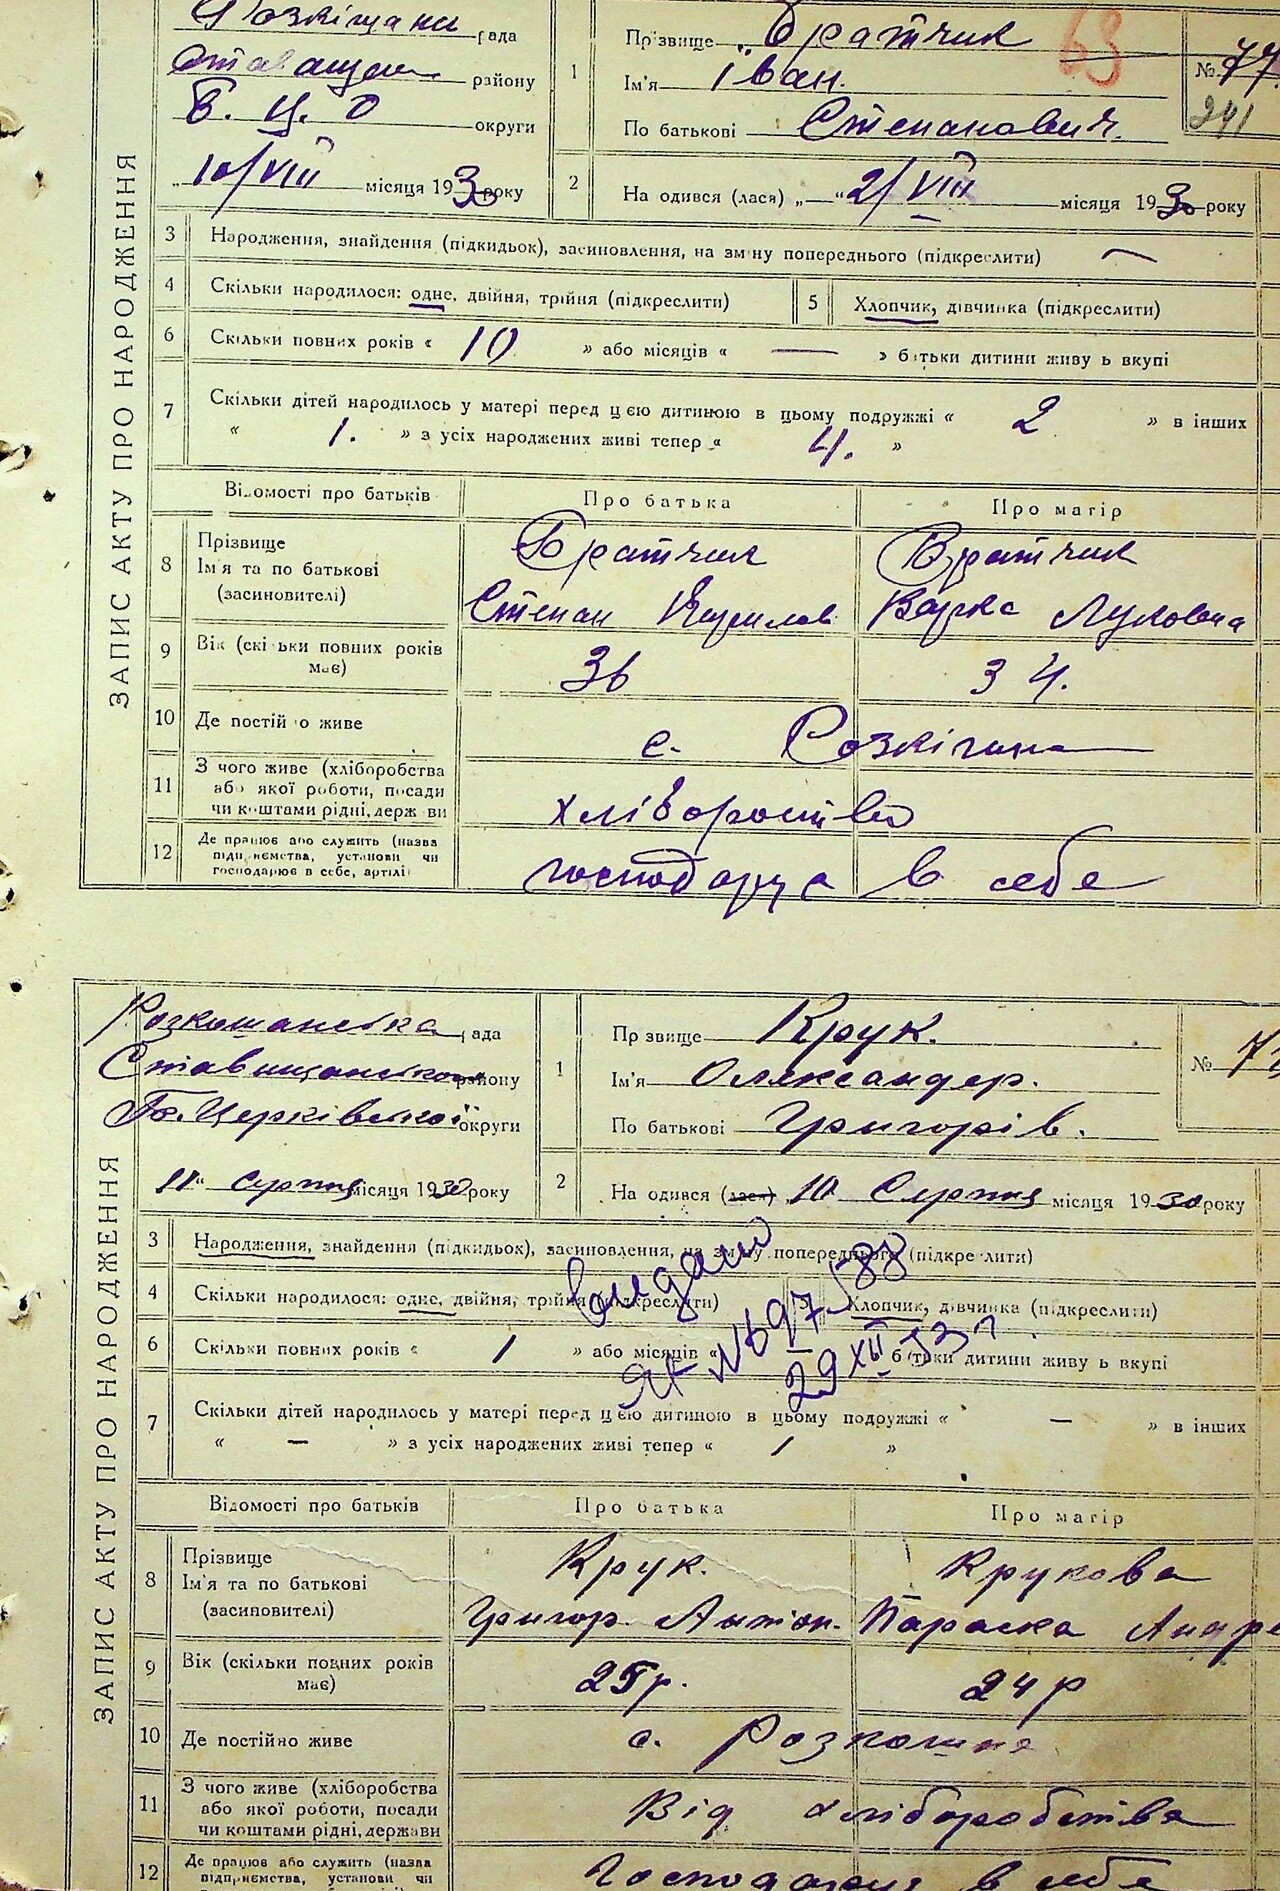 ЗАПИС АКТУ ПРО НАРОДЖЕННЯ
рада
району
Б. Ц. О округи
10/VIII місяця 1930 року
1 Прізвище Братчик
Ім'я Іван.
По батькові Степанович.
№ 77.
63
241
2 На одився (лася) „ — “ 2/VIII місяця 1930 року
3 Народження, знайдення (підкидьок), засиновлення, на зміну попереднього (підкреслити) —
4 Скільки народилося: одне, двійня, трійня (підкреслити)
5 Хлопчик, дівчинка (підкреслити)
6 Скільки повних років « 10 » або місяців « — » батьки дитини живуть вкупі
7 Скільки дітей народилось у матері перед цією дитиною в цьому подружжі « 2 » в інших
« 1. » з усіх народжених живі тепер « 4. »
Відомості про батьків Про батька Про матір
8 Прізвище Братчик Братчик
Ім'я та по батькові
(засиновителі) Степан Варка Луковна
9 Вік (скільки повних років
має) 36 34.
10 Де постійно живе с.
11 З чого живе (хліборобства
або якої роботи, посади
чи коштами рідні, держави
12 Де працює або служить (назва
підприємства, установи чи
господарює в себе, артілі) в себе
ЗАПИС АКТУ ПРО НАРОДЖЕННЯ
Розкошанська рада
Ставищанського району
Б. Церківської округи
11 “ Серпня місяця 1930 року
1 Прізвище Крук.
Ім'я Олександер.
По батькові Григорів.
№
2 На одився (лася) 10 Серпня місяця 1930 року
3 Народження, знайдення (підкидьок), засиновлення, на зміну попереднього (підкреслити)
4 Скільки народилося: одне, двійня, трійня (підкреслити)
5 Хлопчик, дівчинка (підкреслити)
6 Скільки повних років « 1 » або місяців « батьки дитини живуть вкупі
29 XII
7 Скільки дітей народилось у матері перед цією дитиною в цьому подружжі « — » в інших
« — » з усіх народжених живі тепер « 1 »
Відомості про батьків Про батька Про матір
8 Прізвище Крук. Крукова
Ім'я та по батькові
(засиновителі) Григор Антон. Параска
9 Вік (скільки повних років
має) 25 р. 24 р
10 Де постійно живе с. Розкошна
11 З чого живе (хліборобства
або якої роботи, посади
чи коштами рідні, держави Від хліборобства
12 Де працює або служить (назва
підприємства, установи чи
Господарює в себе